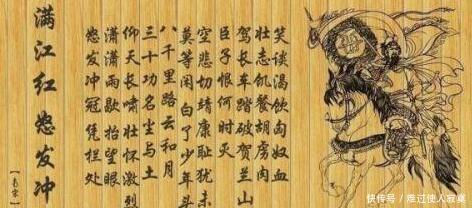 满江红 怒发冲
怒发冲冠凭栏处
潇潇雨歇抬望眼
仰天长啸壮怀激烈
三十功名尘与土
八千里路云和月
莫等闲白了少年头
空悲切靖康耻犹未
臣子恨何时灭
驾长车踏破贺兰山
壮志饥餐胡虏肉
笑谈渴饮匈奴血
快传号 / 难过使人寂寞